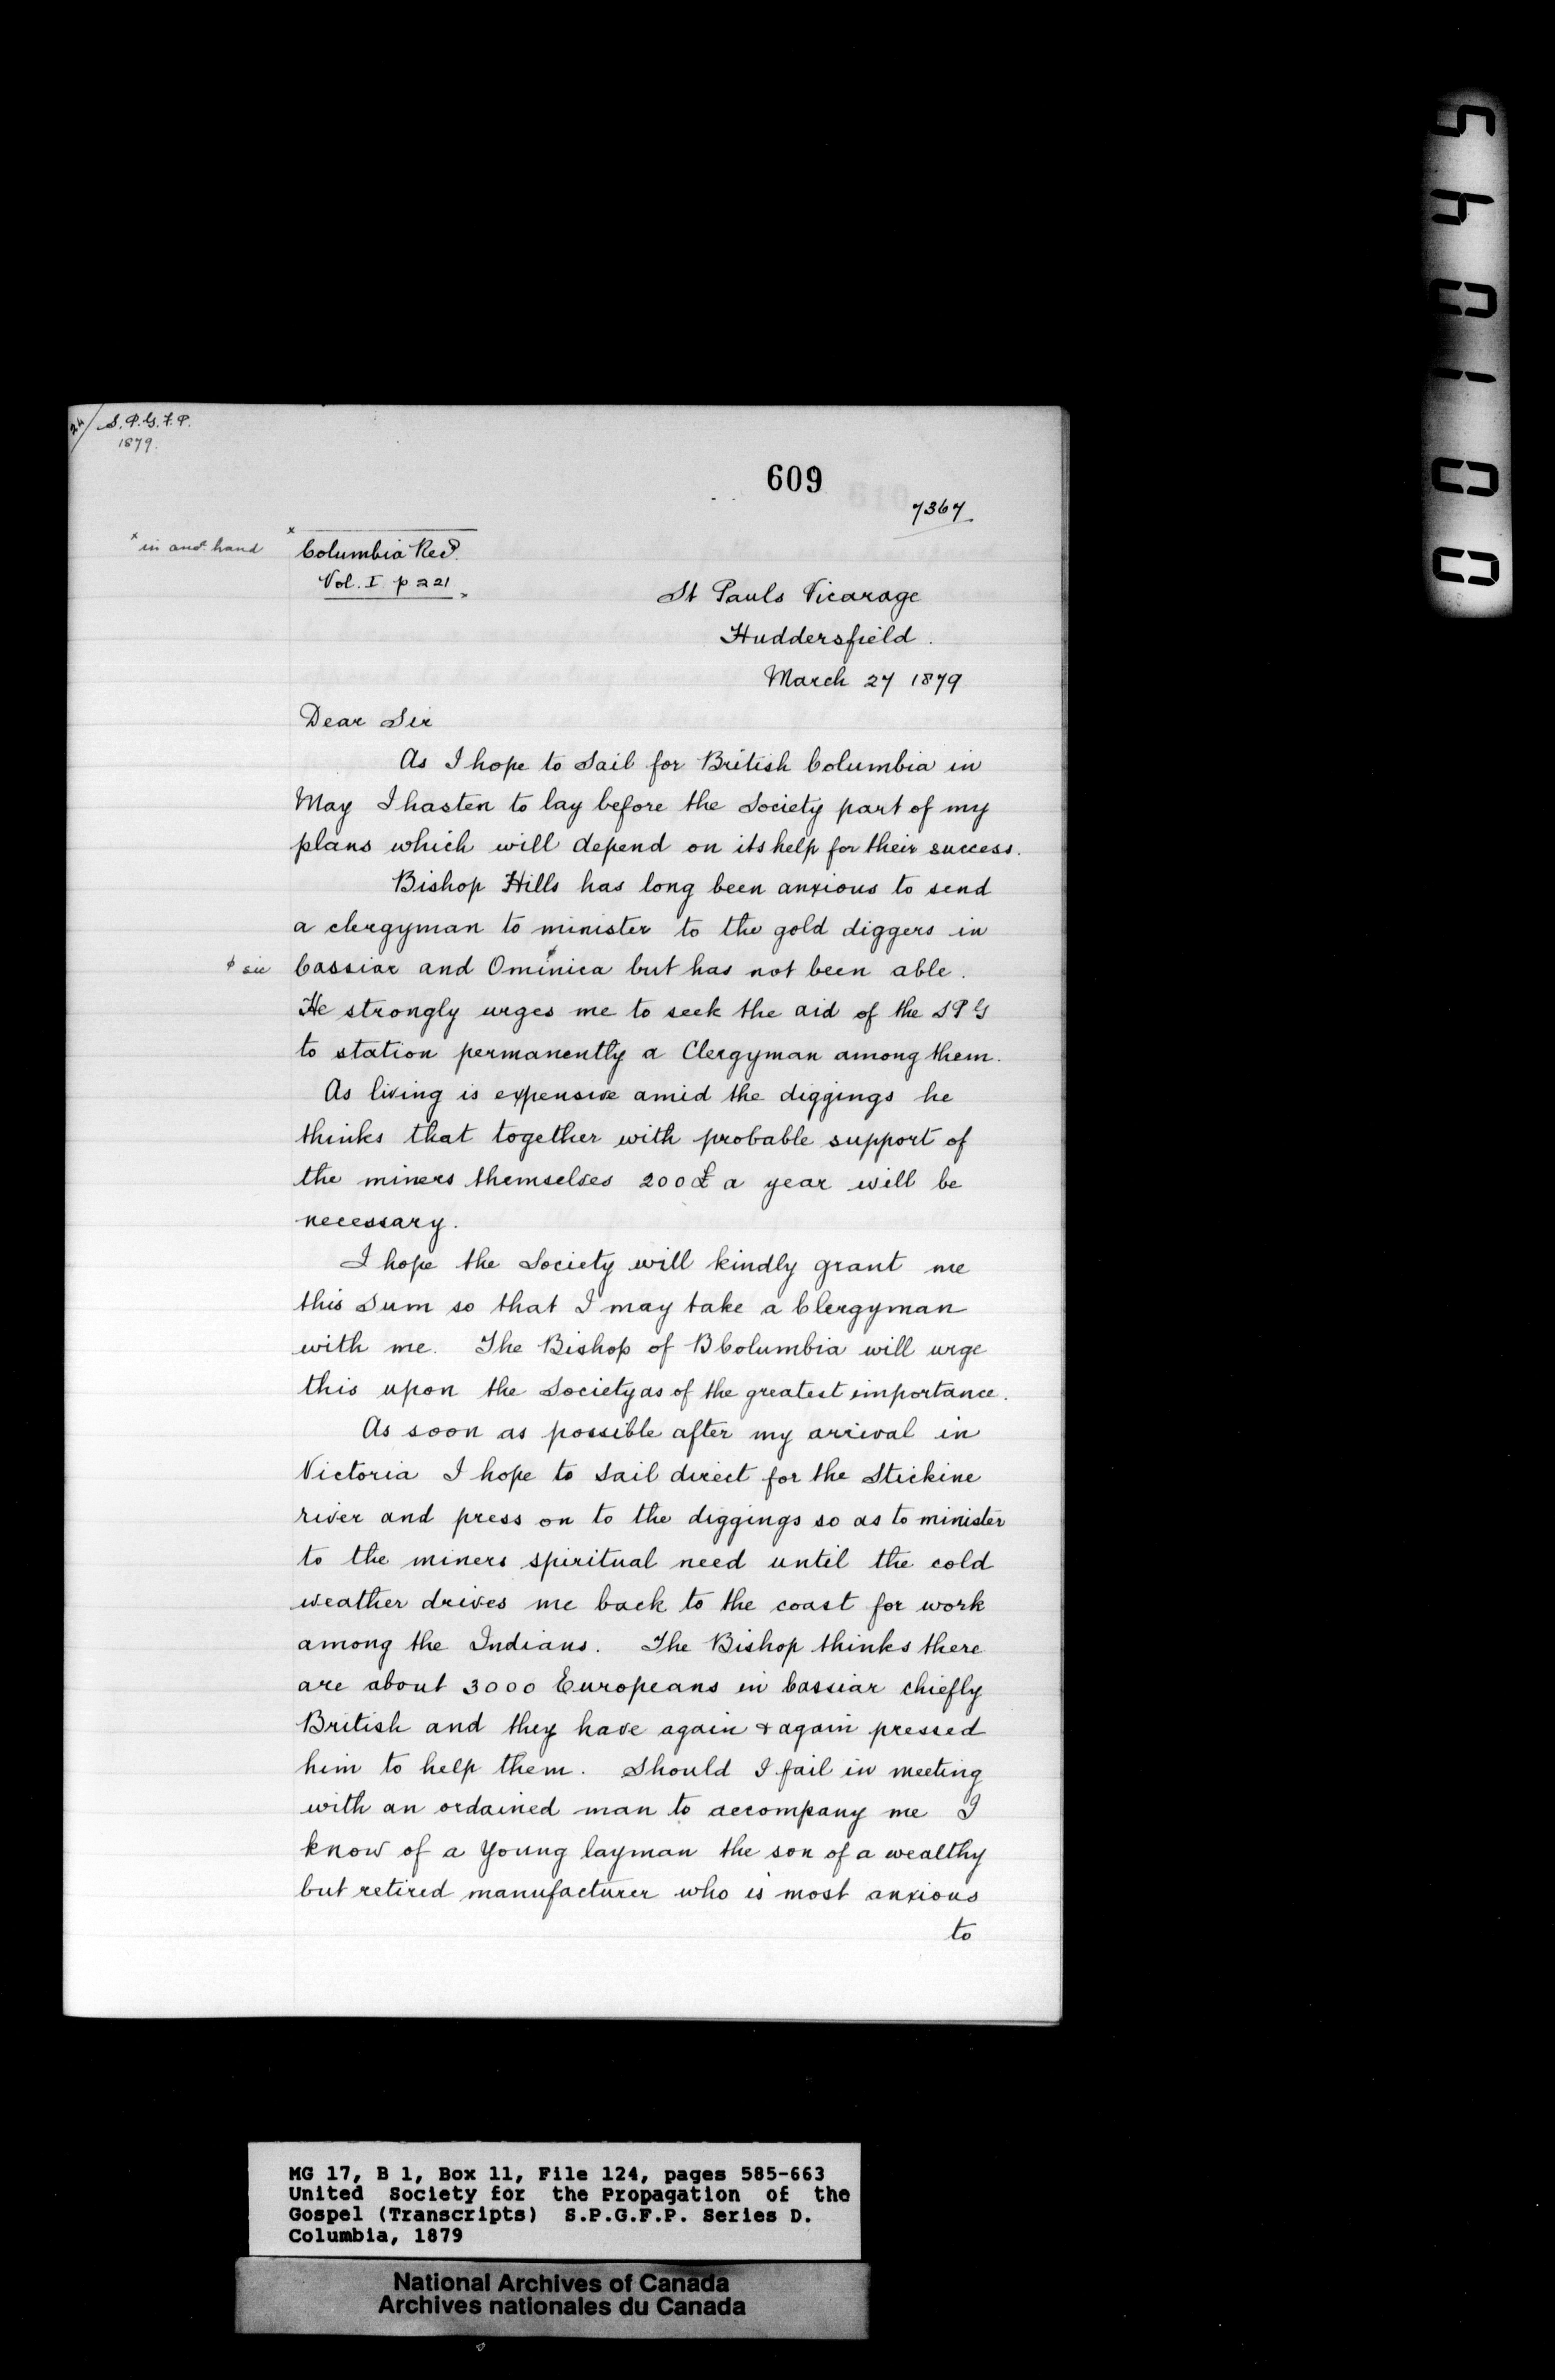 24/ S.P.G.F.P.
1879.
609
7367
x in anor hand
x Columbia Recd.
Vol. I p 221.
St Pauls Vicarage
Huddersfield.
March 27 1879
Dear Sir
As I hope to Sail for British Columbia in
May I hasten to lay before the Society part of my
plans which will depend on its help for their success.
Bishop Hills has long been anxious to send
a clergyman to minister to the gold diggers in
ϕ sic Cassiar and Ominica ϕ but has not been able.
He strongly urges me to seek the aid of the SPG
to station permanently a Clergyman among them.
As living is expensive amid the diggings he
thinks that together with probable support of
the miners themselves 200£ a year will be
necessary.
I hope the Society will kindly grant me
this Sum so that I may take a Clergyman
with me. The Bishop of B Columbia will urge
this upon the Society as of the greatest importance.
As soon as possible after my arrival in
Victoria I hope to Sail direct for the Stickine
river and press on to the diggings so as to minister
to the miners spiritual need until the cold
weather drives me back to the coast for work
among the Indians. The Bishop thinks there
are about 3000 Europeans in Cassiar chiefly
British and they have again & again pressed
him to help them. Should I fail in meeting
with an ordained man to accompany me I
know of a Young layman the son of a wealthy
but retired manufacturer who is most anxious
to
MG 17, B 1, Box 11, File 124, pages 585-663
United Society for the Propagation of the
Gospel (Transcripts) S.P.G.F.P. Series D.
Columbia, 1879
National Archives of Canada
Archives nationales du Canada
001045